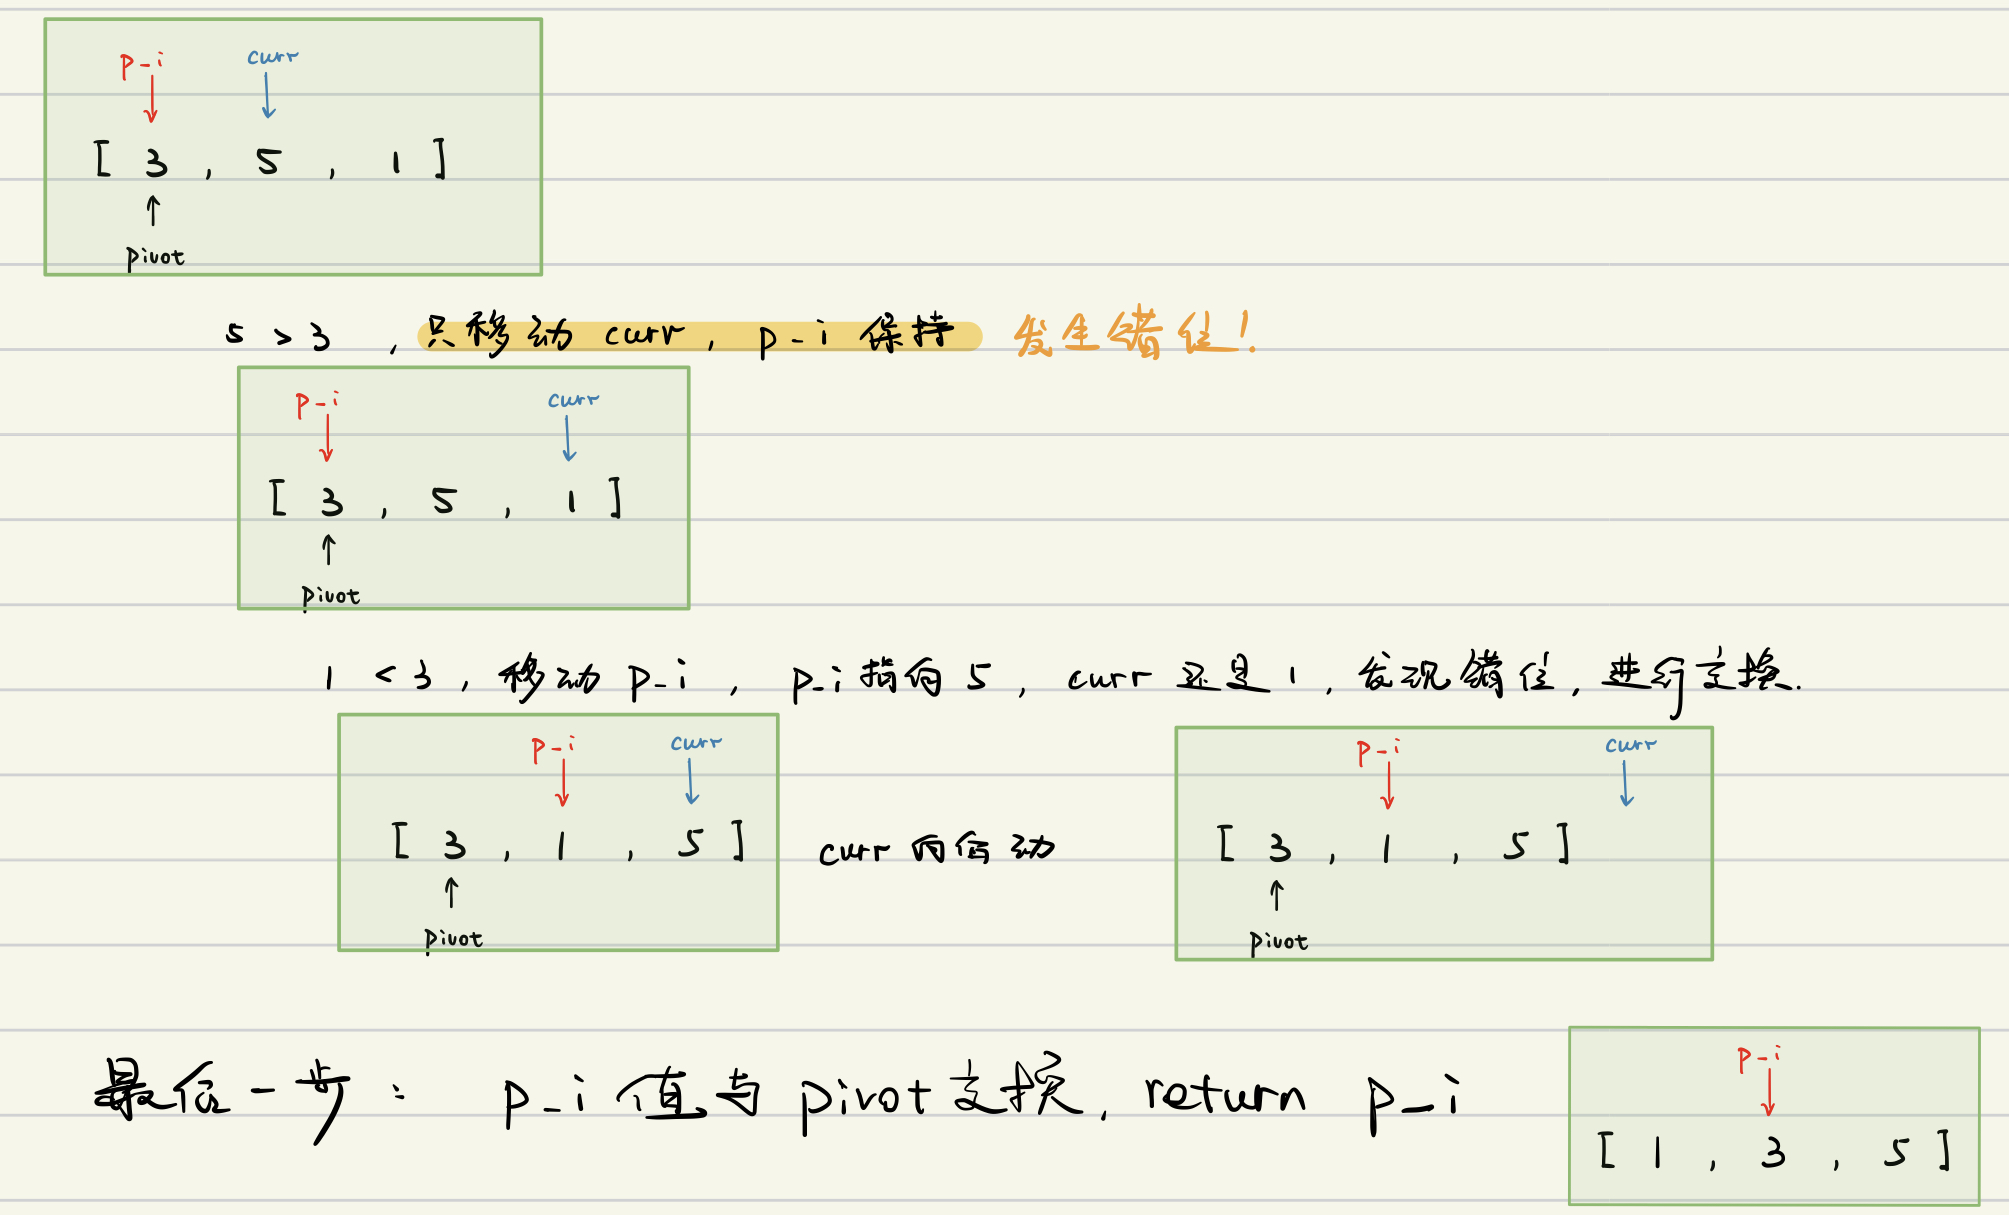 p-i curr
[ 3 , 5 , 1 ]
pivot
5 > 3 , 只移动 curr, p-i 保持 发生错位!
p-i curr
[ 3 , 5 , 1 ]
pivot
1 < 3, 移动 p-i, p-i 指向 5, curr 还是 1, 发现错位, 进行交换.
p-i curr
[ 3 , 1 , 5 ]
pivot
curr 向后动
p-i curr
[ 3 , 1 , 5 ]
pivot
最后一步: p-i 值与 pivot 交换, return p-i
p-i
[ 1 , 3 , 5 ]